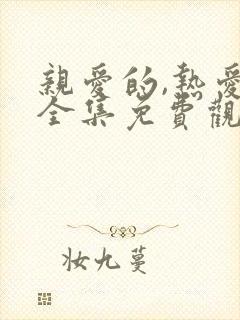 親愛的,熱愛
全集免費觀
妝九蔓